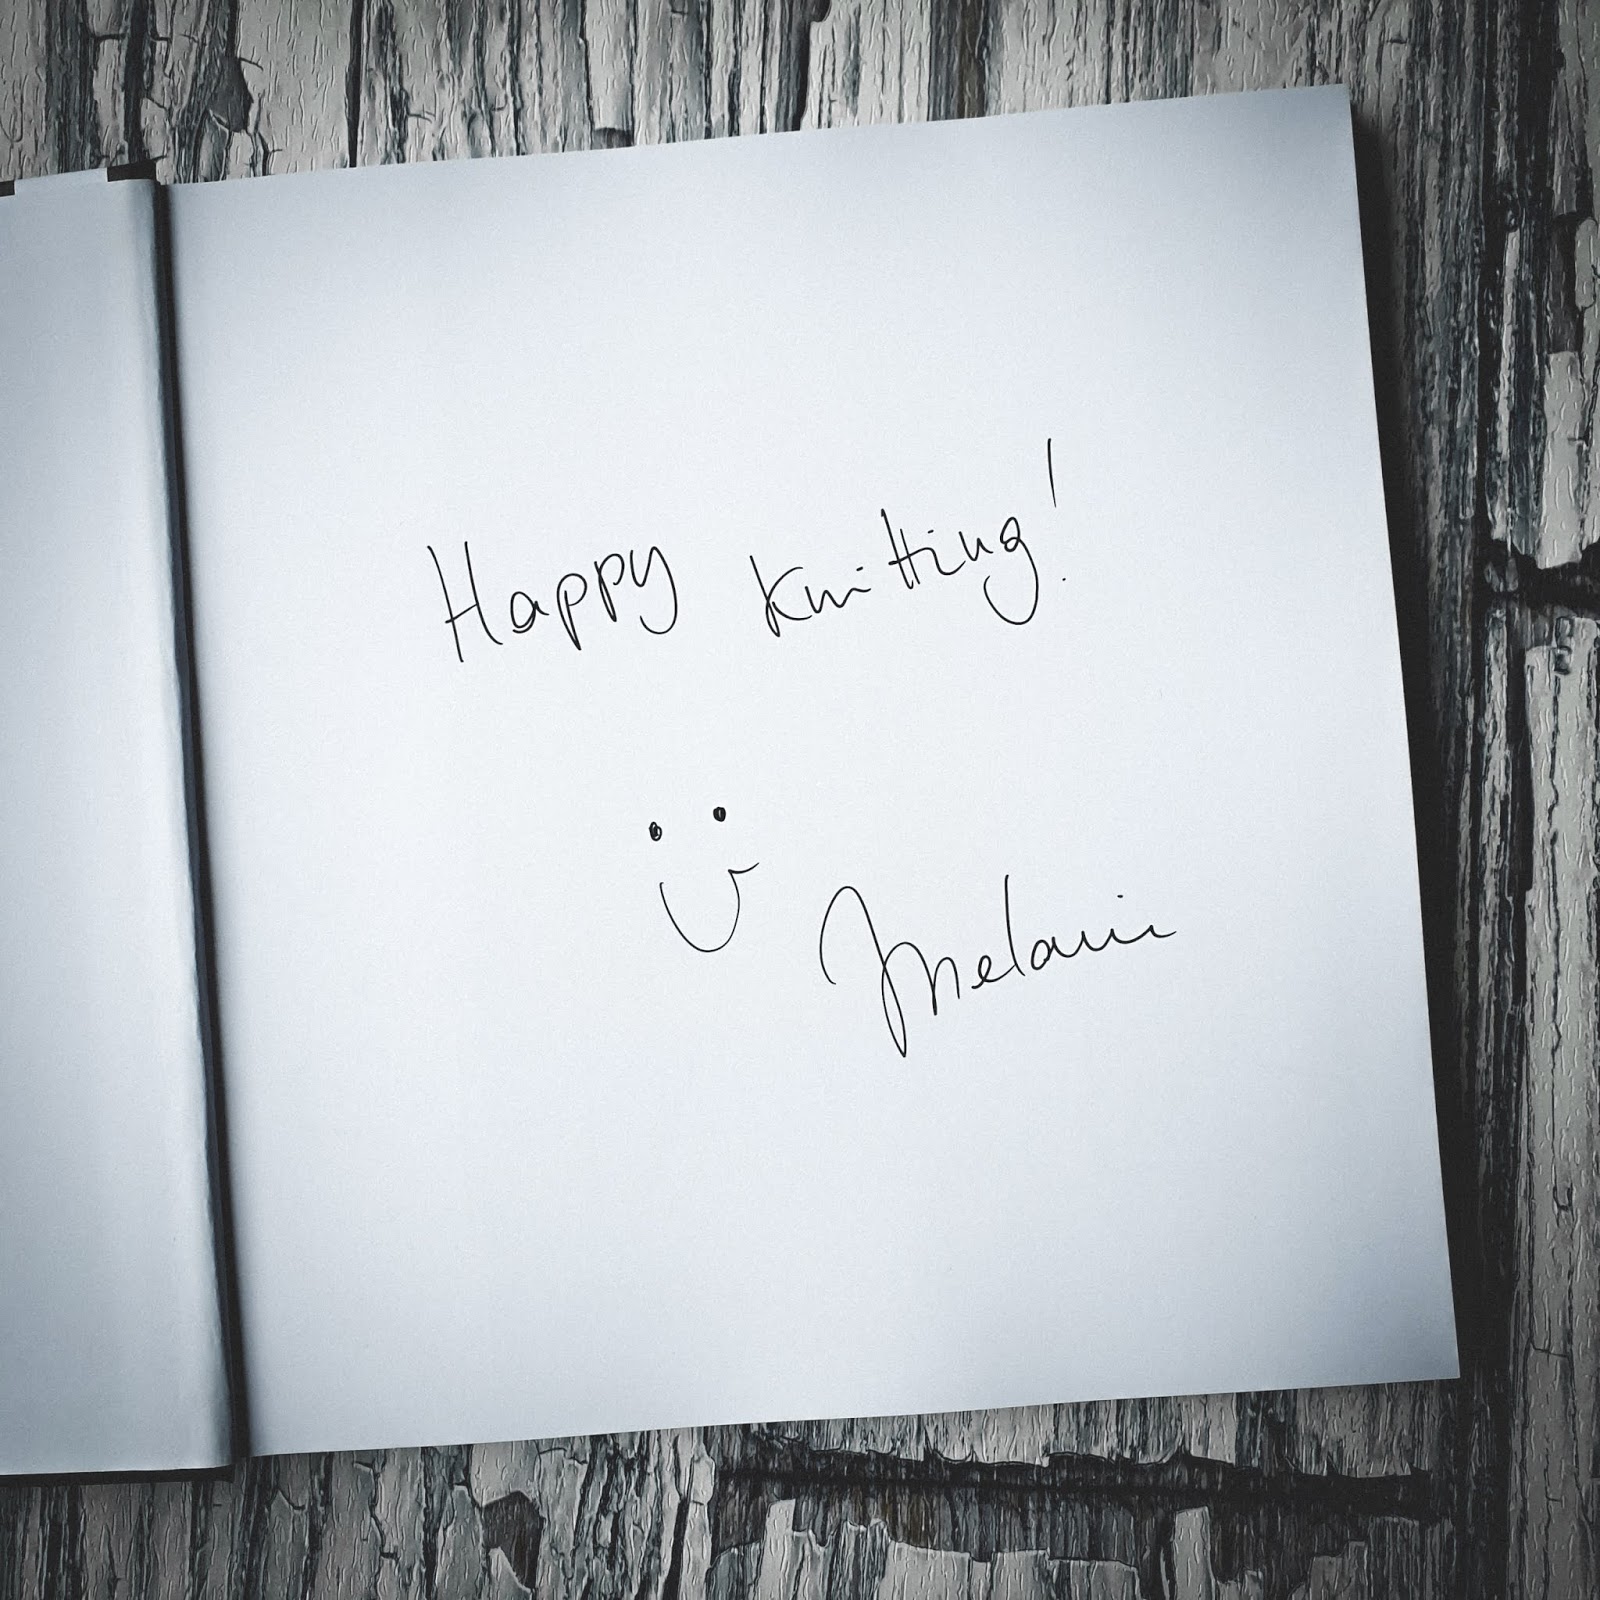 Happy knitting!
Melanie